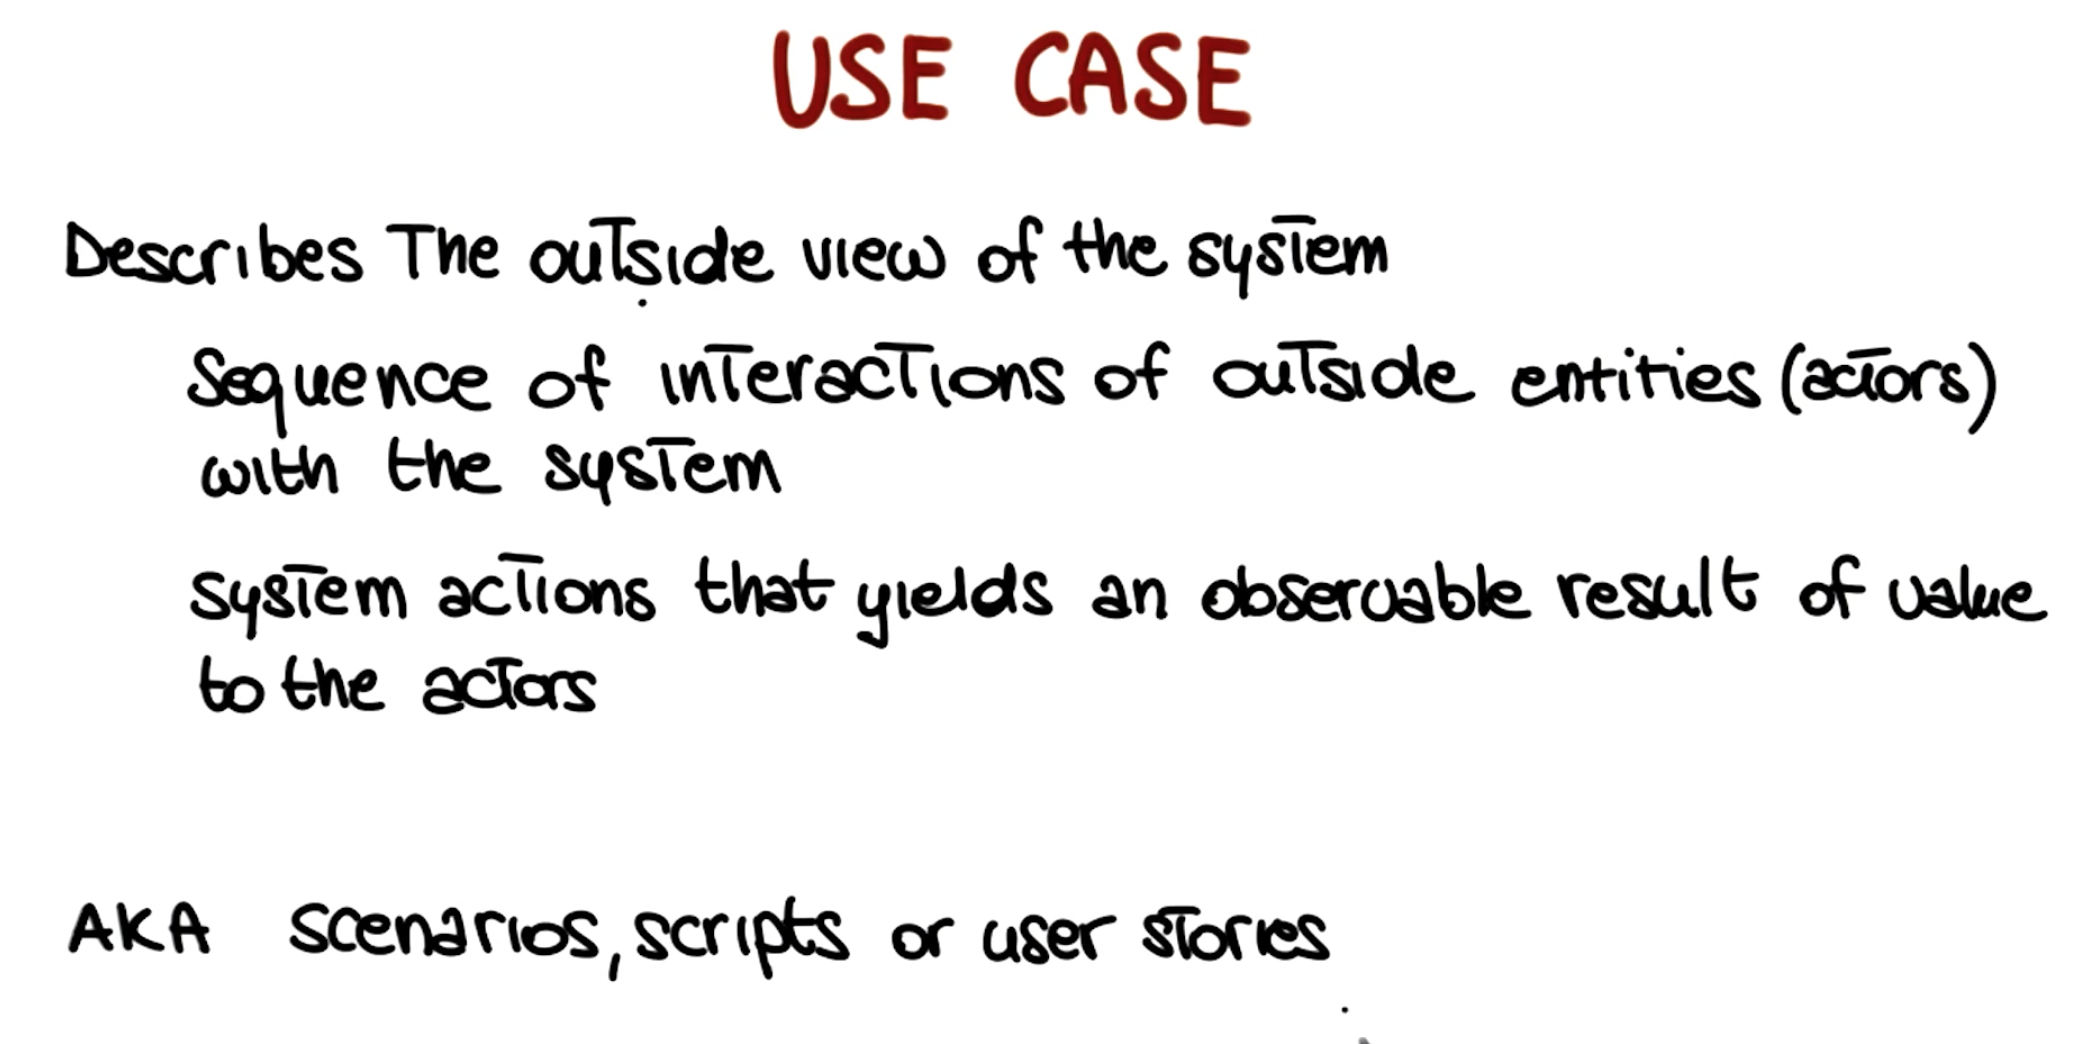 USE CASE
Describes The outside view of the system
Sequence of interactions of outside entities (actors)
with the system
System actions that yields an observable result of value
to the actors
AKA scenarios, scripts or user stories